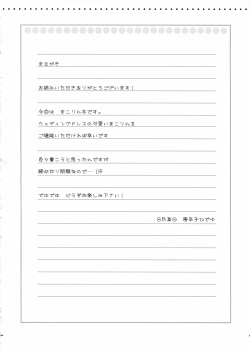 まえがき
お読みいただきありがとうございます！
今回は まこりん本です。
ウェディングドレスの可愛いまこりんを
ご堪能いただければ幸いです。
色々書こうと思ったんですが
締め切り間際なので…(汗
ではでは どうぞお楽しみ下さい！